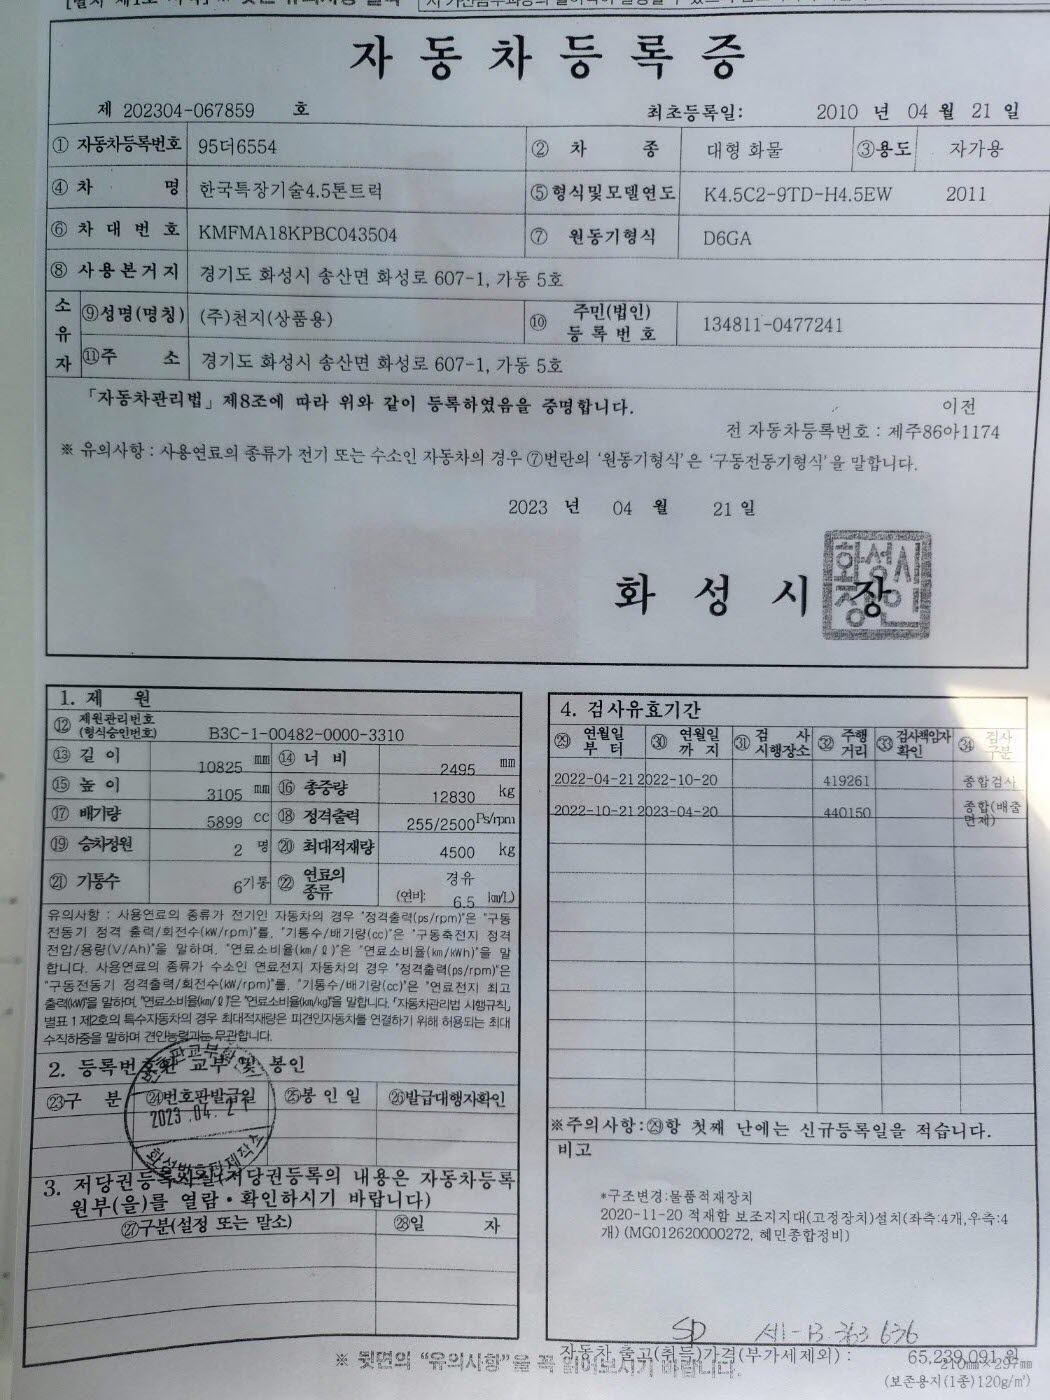 자동차등록증
제 202304-067859 호
최초등록일: 2010 년 04 월 21 일
① 자동차등록번호 95더6554 ② 차 종 대형 화물 ③용도 자가용
④ 차 명 한국특장기술4.5톤트럭 ⑤형식및모델연도 K4.5C2-9TD-H4.5EW 2011
⑥ 차대번호 KMFMA18KPBC043504 ⑦ 원동기형식 D6GA
⑧ 사용본거지 경기도 화성시 송산면 화성로 607-1, 가동 5호
소유자 ⑨성명(명칭) (주)천지(상품용) ⑩ 주민(법인)등록번호 134811-0477241
⑪주 소 경기도 화성시 송산면 화성로 607-1, 가동 5호
「자동차관리법」제8조에 따라 위와 같이 등록하였음을 증명합니다.
이전
전 자동차등록번호 : 제주86아1174
※ 유의사항 : 사용연료의 종류가 전기 또는 수소인 자동차의 경우 ⑦번란의 '원동기형식'은 '구동전동기형식'을 말합니다.
2023 년 04 월 21 일
화성시장
1. 제 원
⑫ 제원관리번호 (형식승인번호) B3C-1-00482-0000-3310
⑬ 길이 10825 mm ⑭ 너비 2495 mm
⑮ 높이 3105 mm ⑯ 총중량 12830 kg
⑰ 배기량 5899 cc ⑱ 정격출력 255/2500 Ps/rpm
⑲ 승차정원 2 명 ⑳ 최대적재량 4500 kg
㉑ 기통수 6기통 ㉒ 연료의 종류 경유 (연비: 6.5 km/L)
유의사항 : 사용연료의 종류가 전기인 자동차의 경우 "정격출력(ps/rpm)"은 "구동
전동기 정격 출력/회전수(kW/rpm)"를, "기통수/배기량(cc)"은 "구동축전지 정격
전압/용량(V/Ah)"을 말하며, "연료소비율(km/ℓ)"은 "연료소비율(km/kWh)"을 말
합니다. 사용연료의 종류가 수소인 연료전지 자동차의 경우 "정격출력(ps/rpm)"은
"구동전동기 정격출력/회전수(kW/rpm)"를, "기통수/배기량(cc)"은 "연료전지 최고
출력(kW)"을 말하며, "연료소비율(km/ℓ)"은 "연료소비율(km/kg)"을 말합니다. 「자동차관리법 시행규칙」
별표 1 제2호의 특수자동차의 경우 최대적재량은 피견인자동차를 연결하기 위해 허용되는 최대
수직하중을 말하며 견인능력과는 무관합니다.
2. 등록번호판 교부 및 봉인
㉓구 분 ㉔번호판발급일 ㉕봉인일 ㉖발급대행자확인
2023.04.21
3. 저당권등록사실(저당권등록의 내용은 자동차등록
원부(을)를 열람·확인하시기 바랍니다)
㉗구분(설정 또는 말소) ㉘일 자
4. 검사유효기간
㉙ 연월일부터 ㉚ 연월일까지 ㉛ 검사시행장소 ㉜ 주행거리 ㉝ 검사책임자확인 ㉞ 검사구분
2022-04-21 2022-10-20 419261 종합검사
2022-10-21 2023-04-20 440150 종합(배출면제)
※주의사항:㉙항 첫째 난에는 신규등록일을 적습니다.
비고
*구조변경:물품적재장치
2020-11-20 적재함 보조지지대(고정장치)설치(좌측:4개,우측:4
개) (MG012620000272, 혜민종합정비)
자동차 출고(취득)가격(부가세제외) : 65,239,091 원
※ 뒷면의 "유의사항"을 꼭 읽어보시기 바랍니다.
210㎜×297㎜
(보존용지(1종)120g/㎡)